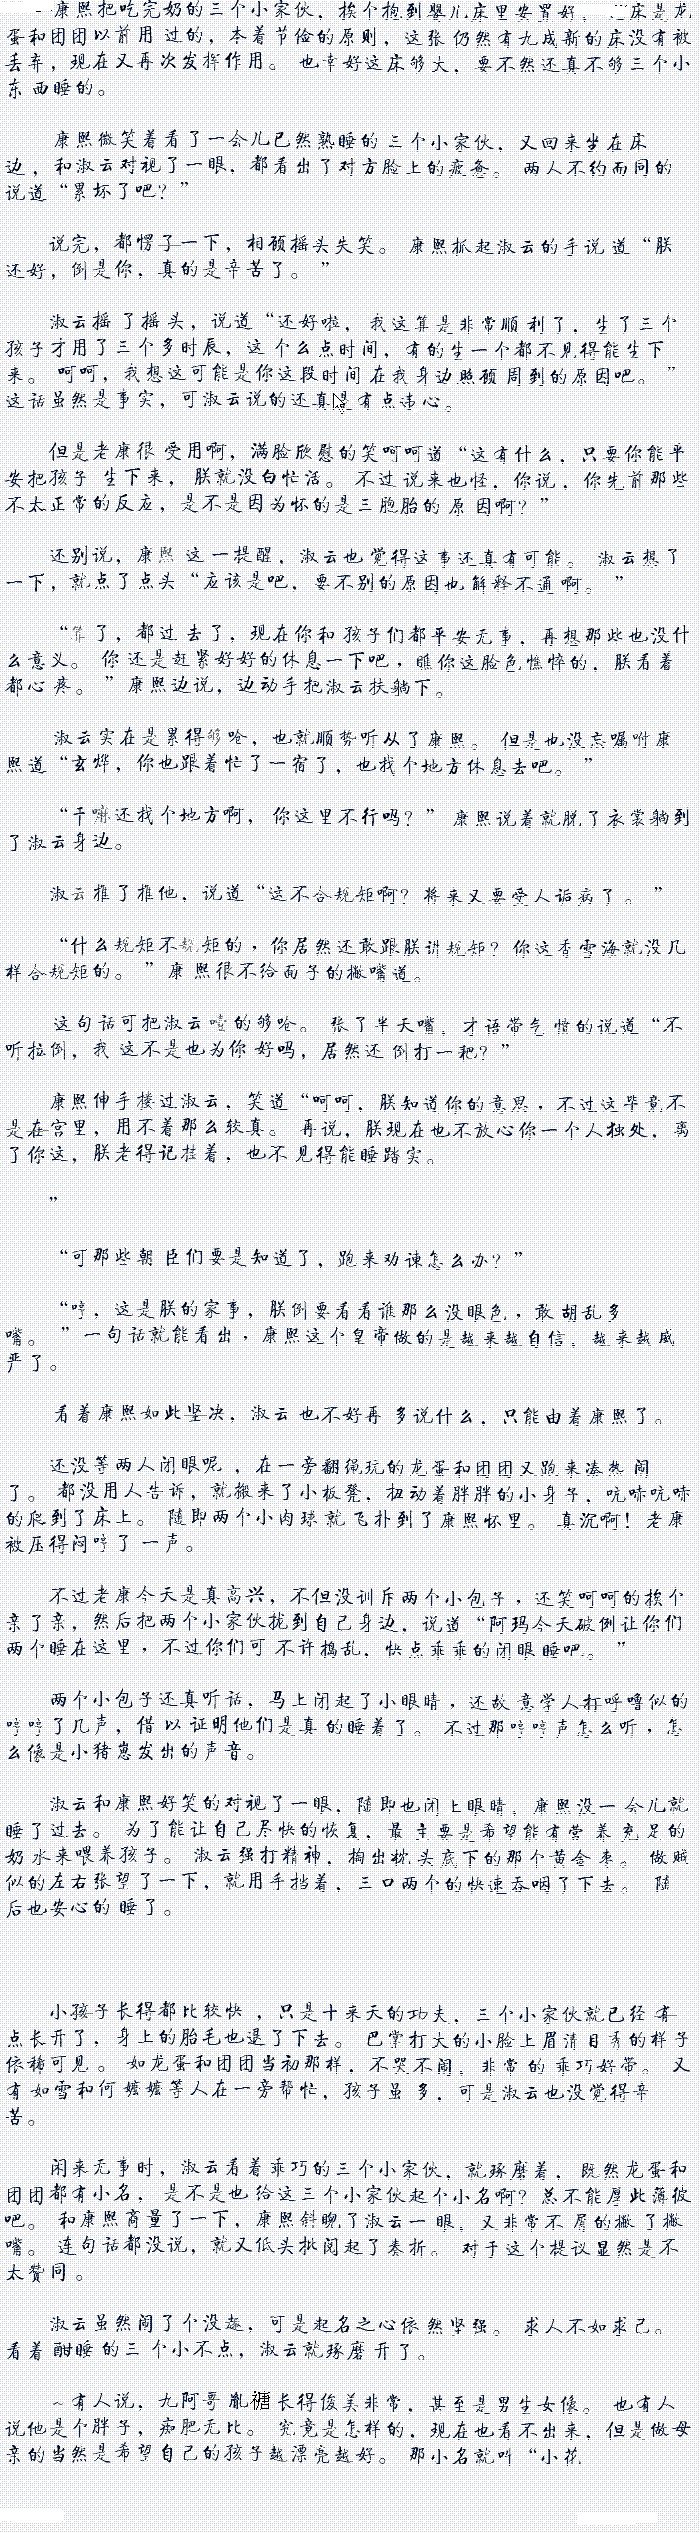 康熙把吃完奶的三个小家伙，挨个抱到婴儿床里安置好。 床是龙
蛋和团团以前用过的，本着节俭的原则，这张仍然有九成新的床没有被
丢弃，现在又再次发挥作用。 也幸好这床够大，要不然还真不够三个小
东西睡的。
康熙微笑着看了一会儿已然熟睡的三个小家伙，又回来坐在床
边，和淑云对视了一眼，都看出了对方脸上的疲惫。 两人不约而同的
说道“累坏了吧？”
说完，都愣了一下，相顾摇头失笑。 康熙抓起淑云的手说道“朕
还好，倒是你，真的是辛苦了。”
淑云摇了摇头，说道“还好啦，我这算是非常顺利了，生了三个
孩子才用了三个多时辰，这个么点时间，有的生一个都不见得能生下
来。 呵呵，我想这可能是你这段时间在我身边照顾周到的原因吧。”
这话虽然是事实，可淑云说的还真是有点违心。
但是老康很受用啊，满脸欣慰的笑呵呵道“这有什么，只要你能平
安把孩子生下来，朕就没白忙活。 不过说来也怪，你说，你先前那些
不太正常的反应，是不是因为怀的是三胞胎的原因啊？”
还别说，康熙这一提醒，淑云也觉得这事还真有可能。 淑云想了
一下，就点了点头“应该是吧，要不别的原因也解释不通啊。”
“算了，都过去了，现在你和孩子们都平安无事，再想那些也没什
么意义。 你还是赶紧好好的休息一下吧，瞧你这脸色憔悴的，朕看着
都心疼。”康熙边说，边动手把淑云扶躺下。
淑云实在是累得够呛，也就顺势听从了康熙。 但是也没忘嘱咐康
熙道“玄烨，你也跟着忙了一宿了，也找个地方休息去吧。”
“干嘛还找个地方啊，你这里不行吗？”康熙说着就脱了衣裳躺到
了淑云身边。
淑云推了推他，说道“这不合规矩啊？将来又要受人诟病了。”
“什么规矩不规矩的，你居然还敢跟朕讲规矩？你这香雪海就没几
样合规矩的。”康熙很不给面子的撇嘴道。
这句话可把淑云噎的够呛。 张了半天嘴，才语带气愤的说道“不
听拉倒，我这不是也为你好吗，居然还倒打一耙？”
康熙伸手搂过淑云，笑道“呵呵，朕知道你的意思，不过这毕竟不
是在宫里，用不着那么较真。 再说，朕现在也不放心你一个人独处，离
了你这，朕老得记挂着，也不见得能睡踏实。
”
“可那些朝臣们要是知道了，跑来劝谏怎么办？”
“哼，这是朕的家事，朕倒要看看谁那么没眼色，敢胡乱多
嘴。”一句话就能看出，康熙这个皇帝做的是越来越自信，越来越威
严了。
看着康熙如此坚决，淑云也不好再多说什么，只能由着康熙了。
还没等两人闭眼呢，在一旁翻绳玩的龙蛋和团团又跑来凑热闹
了。 都没用人告诉，就搬来了小板凳，扭动着胖胖的小身子，吭哧吭哧
的爬到了床上。 随即两个小肉球就飞扑到了康熙怀里。 真沉啊！老康
被压得闷哼了一声。
不过老康今天是真高兴，不但没训斥两个小包子，还笑呵呵的挨个
亲了亲，然后把两个小家伙拢到自己身边，说道“阿玛今天破例让你们
两个睡在这里，不过你们可不许捣乱，快点乖乖的闭眼睡吧。”
两个小包子还真听话，马上闭起了小眼睛，还故意学人打呼噜似的
哼哼了几声，借以证明他们是真的睡着了。 不过那哼哼声怎么听，怎
么像是小猪崽发出的声音。
淑云和康熙好笑的对视了一眼，随即也闭上眼睛。康熙没一会儿就
睡了过去。 为了能让自己尽快的恢复，最主要是希望能有营养充足的
奶水来喂养孩子。 淑云强打精神，掏出枕头底下的那个黄金枣。 做贼
似的左右张望了一下，就用手挡着，三口两个的快速吞咽了下去。 随
后也安心的睡了。
小孩子长得都比较快，只是十来天的功夫，三个小家伙就已经有
点长开了，身上的胎毛也退了下去。 巴掌打大的小脸上眉清目秀的样子
依稀可见。 如龙蛋和团团当初那样，不哭不闹，非常的乖巧好带。 又
有如雪和何嬷嬷等人在一旁帮忙，孩子虽多，可是淑云也没觉得辛
苦。
闲来无事时，淑云看着乖巧的三个小家伙，就琢磨着，既然龙蛋和
团团都有小名，是不是也给这三个小家伙起个小名啊？总不能厚此薄彼
吧。 和康熙商量了一下，康熙斜睨了淑云一眼，又非常不屑的撇了撇
嘴。 连句话都没说，就又低头批阅起了奏折。 对于这个提议显然是不
太赞同。
淑云虽然闹了个没趣，可是起名之心依然坚强。 求人不如求己。
看着酣睡的三个小不点，淑云就琢磨开了。
～有人说，九阿哥胤禟长得俊美非常，甚至是男生女像。 也有人
说他是个胖子，痴肥无比。 究竟是怎样的，现在也看不出来，但是做母
亲的当然是希望自己的孩子越漂亮越好。 那小名就叫“小花